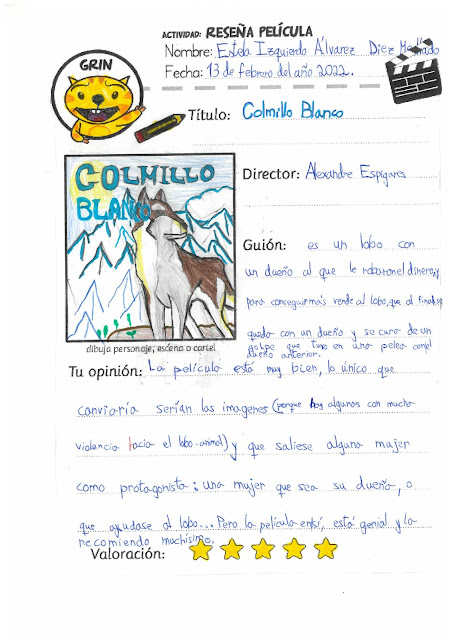 ACTIVIDAD: RESEÑA PELÍCULA
Nombre: Estela Izquierdo Álvarez Diez Mellado
Fecha: 13 de febrero del año 2022.
GRIN
Título: Colmillo Blanco
COLMILLO
BLANCO
Director: Alexandre Espigares
Guión: es un lobo con
un dueño al que le robaron el dinero, y
para conseguir más vende al lobo, que al final se
queda con un dueño y se cura de un
golpe que tuvo en una pelea con el
dueño anterior.
dibuja personaje, escena o cartel
Tu opinión: La película está muy bien, lo único que
cambiaría serían las imagenes (porque hay algunas con mucha
violencia hacia el lobo-animal) y que saliese alguna mujer
como protagonista: una mujer que sea su dueña, o
que ayudase al lobo... Pero la película en sí, está genial y la
recomiendo muchísimo.
Valoración: